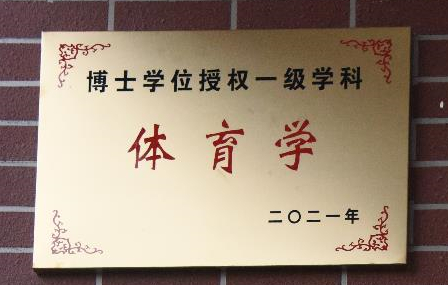 博士学位授权一级学科
体育学
二〇二一年